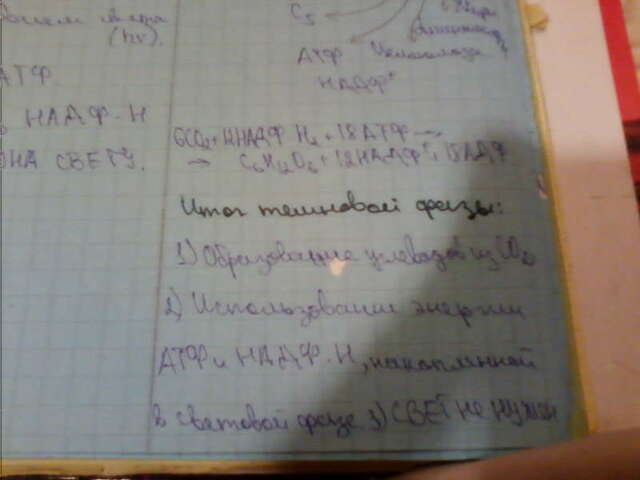 (hν).
АТФ
НАДФ·Н
НА СВЕТУ.
C5
АТФ
НАДФ+
6CO2+12НАДФ H2+18АТФ →
→ C6H12O6+12НАДФ+18АДФ
Итог темновой фазы:
1) Образование углеводов из CO2
2) Использование энергии
АТФ и НАДФ·Н, накоплянной
в световой фазе 3) СВЕТ НЕ НУЖЕН